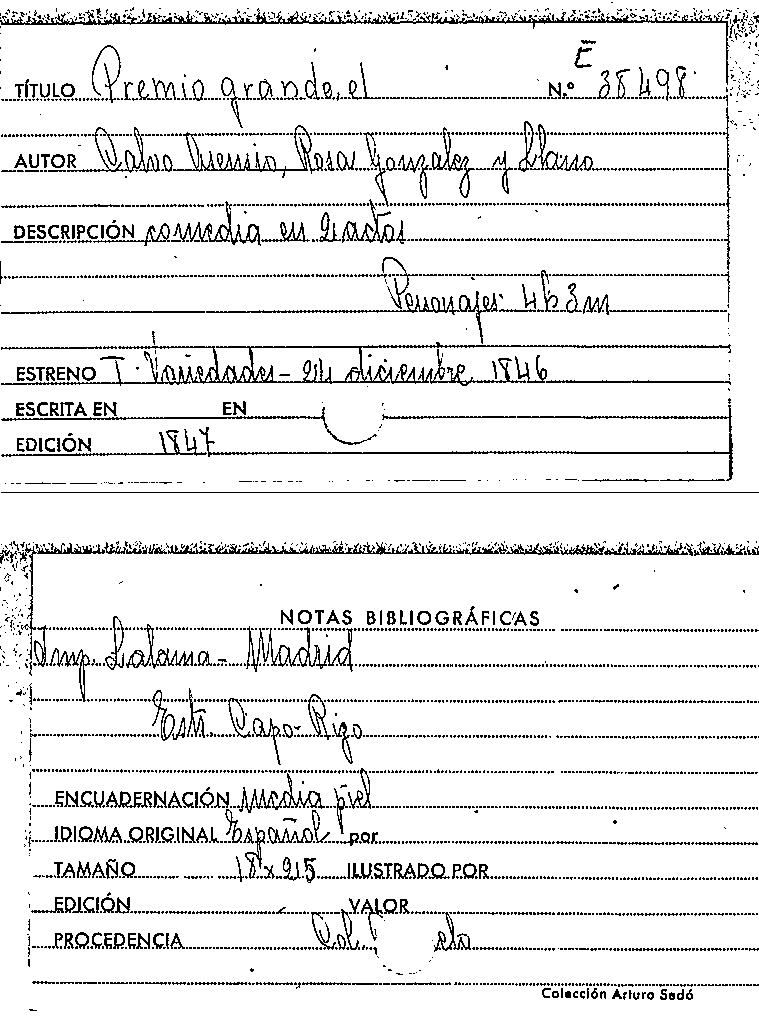 E
TÍTULO Premio grande, el N.º 38498
AUTOR Calvo Asensio, Rosa Gonzalez y Llano
DESCRIPCIÓN comedia en 2 actos
Personajes: 4h 3m
ESTRENO T. Variedades - 24 diciembre 1846
ESCRITA EN EN
EDICIÓN 1847
NOTAS BIBLIOGRÁFICAS
Imp. Lalama - Madrid
Estr. Capo-Rigo
ENCUADERNACIÓN media piel
IDIOMA ORIGINAL Español por
TAMAÑO 18 x 215 ILUSTRADO POR
EDICIÓN VALOR
PROCEDENCIA Col.
Colección Arturo Sedó